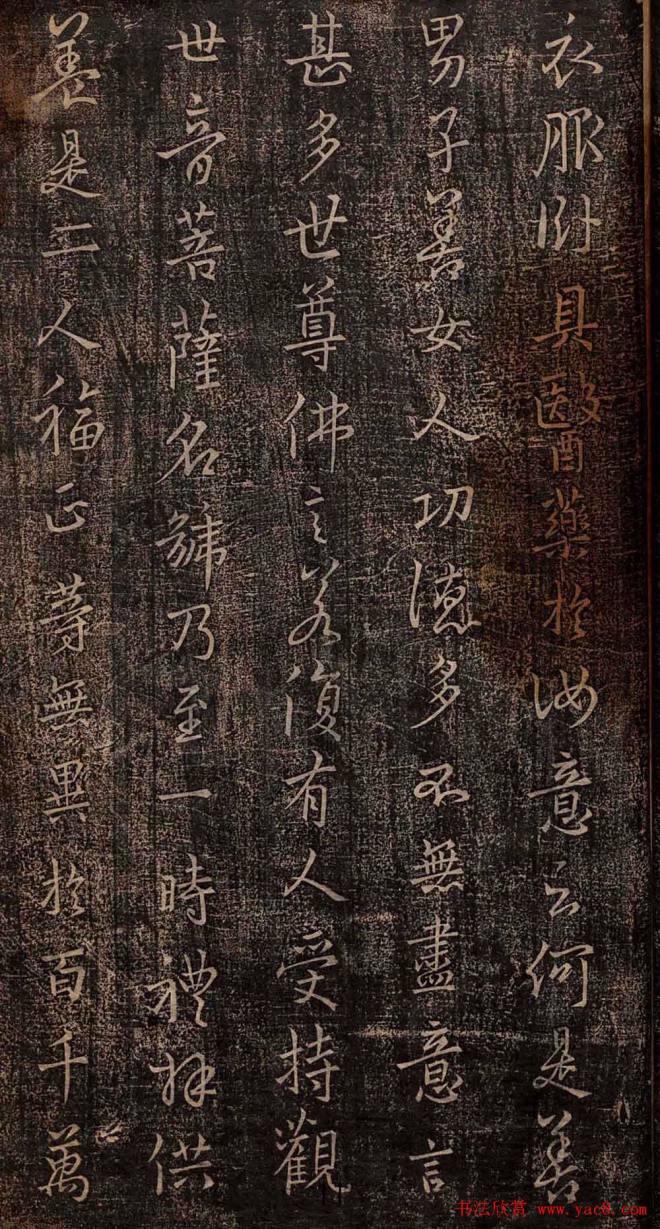 衣服卧具醫藥於汝意云何是善
男子善女人功德多不無盡意言
甚多世尊佛言若復有人受持觀
世音菩薩名號乃至一時禮拜供
養是二人福正等無異於百千萬
书法欣赏 www.yac8.com